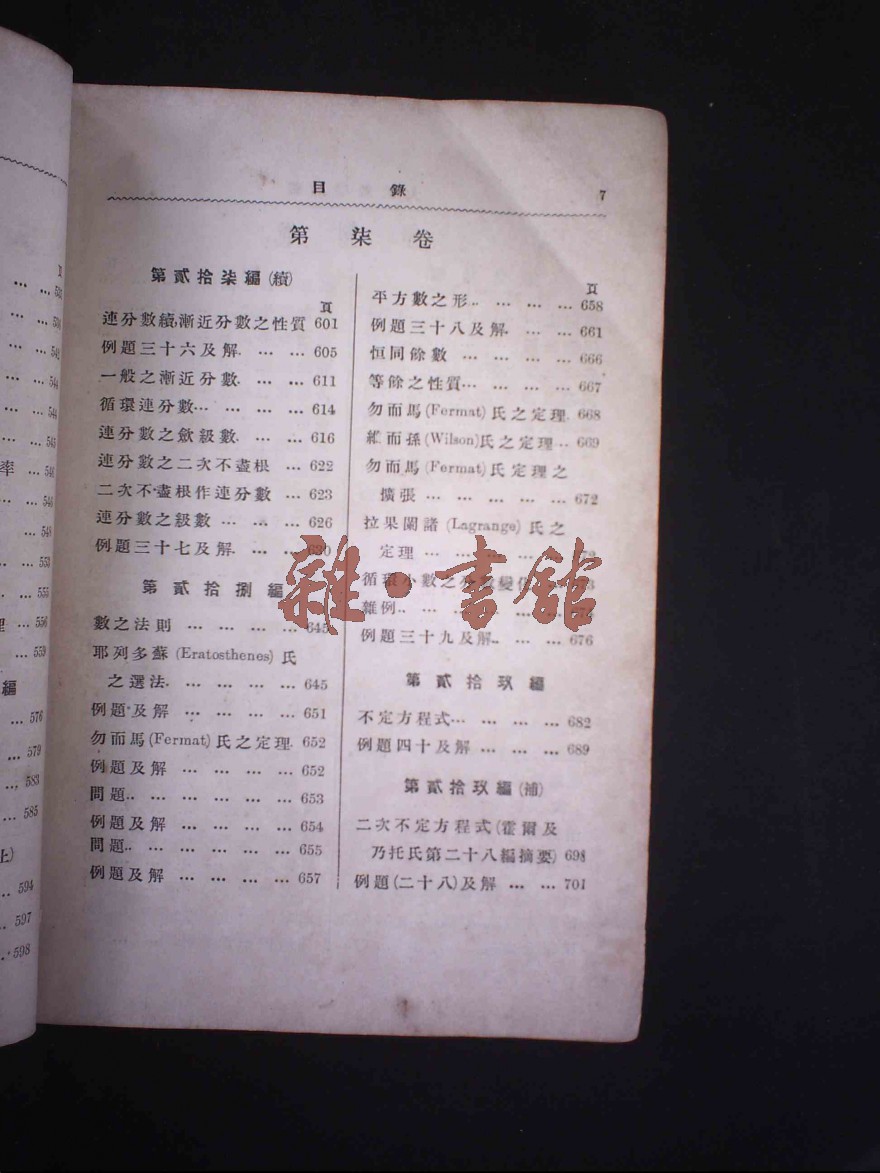 目錄 7
第柒卷
第貳拾柒編(續)
頁
連分數續,漸近分數之性質 601
例題三十六及解. ... ... 605
一般之漸近分數. ... ... 611
循環連分數... ... ... ... 614
連分數之斂級數. ... ... 616
連分數之二次不盡根 ... 622
二次不盡根作連分數 ... 623
連分數之級數 ... ... ... 626
例題三十七及解. ... ... 630
第貳拾捌編
數之法則 ... ... ... ... 645
耶列多蘇 (Eratosthenes) 氏
之選法. ... ... ... ... 645
例題及解 ... ... ... ... 651
勿而馬(Fermat)氏之定理. 652
例題及解 ... ... ... ... 652
問題.. ... ... ... ... ... 653
例題及解 ... ... ... ... 654
問題.. ... ... ... ... ... 655
例題及解 ... ... ... ... 657
頁
平方數之形.. ... ... ... 658
例題三十八及解. ... ... 661
恒同餘數 ... ... ... ... 666
等餘之性質... ... ... ... 667
勿而馬(Fermat)氏之定理. 668
維而孫(Wilson)氏之定理... 669
勿而馬(Fermat)氏定理之
擴張 ... ... ... ... ... 672
拉果闌諸 (Lagrange) 氏之
定理 ... ... ... ... ...
循環小數之分數變化
雜例.. ... ... ... ...
例題三十九及解.. ... ... 676
第貳拾玖編
不定方程式... ... ... ... 682
例題四十及解 ... ... ... 689
第貳拾玖編(補)
二次不定方程式(霍爾及
乃托氏第二十八編摘要) 698
例題(二十八)及解 ... ... 701
雜·書館
頁
542
544
544
545
率 ... 546
546
548
553
555
理 ... 556
... 559
編
... 576
... 579
... 583
... 585
上)
.. 594
... 597
... 598